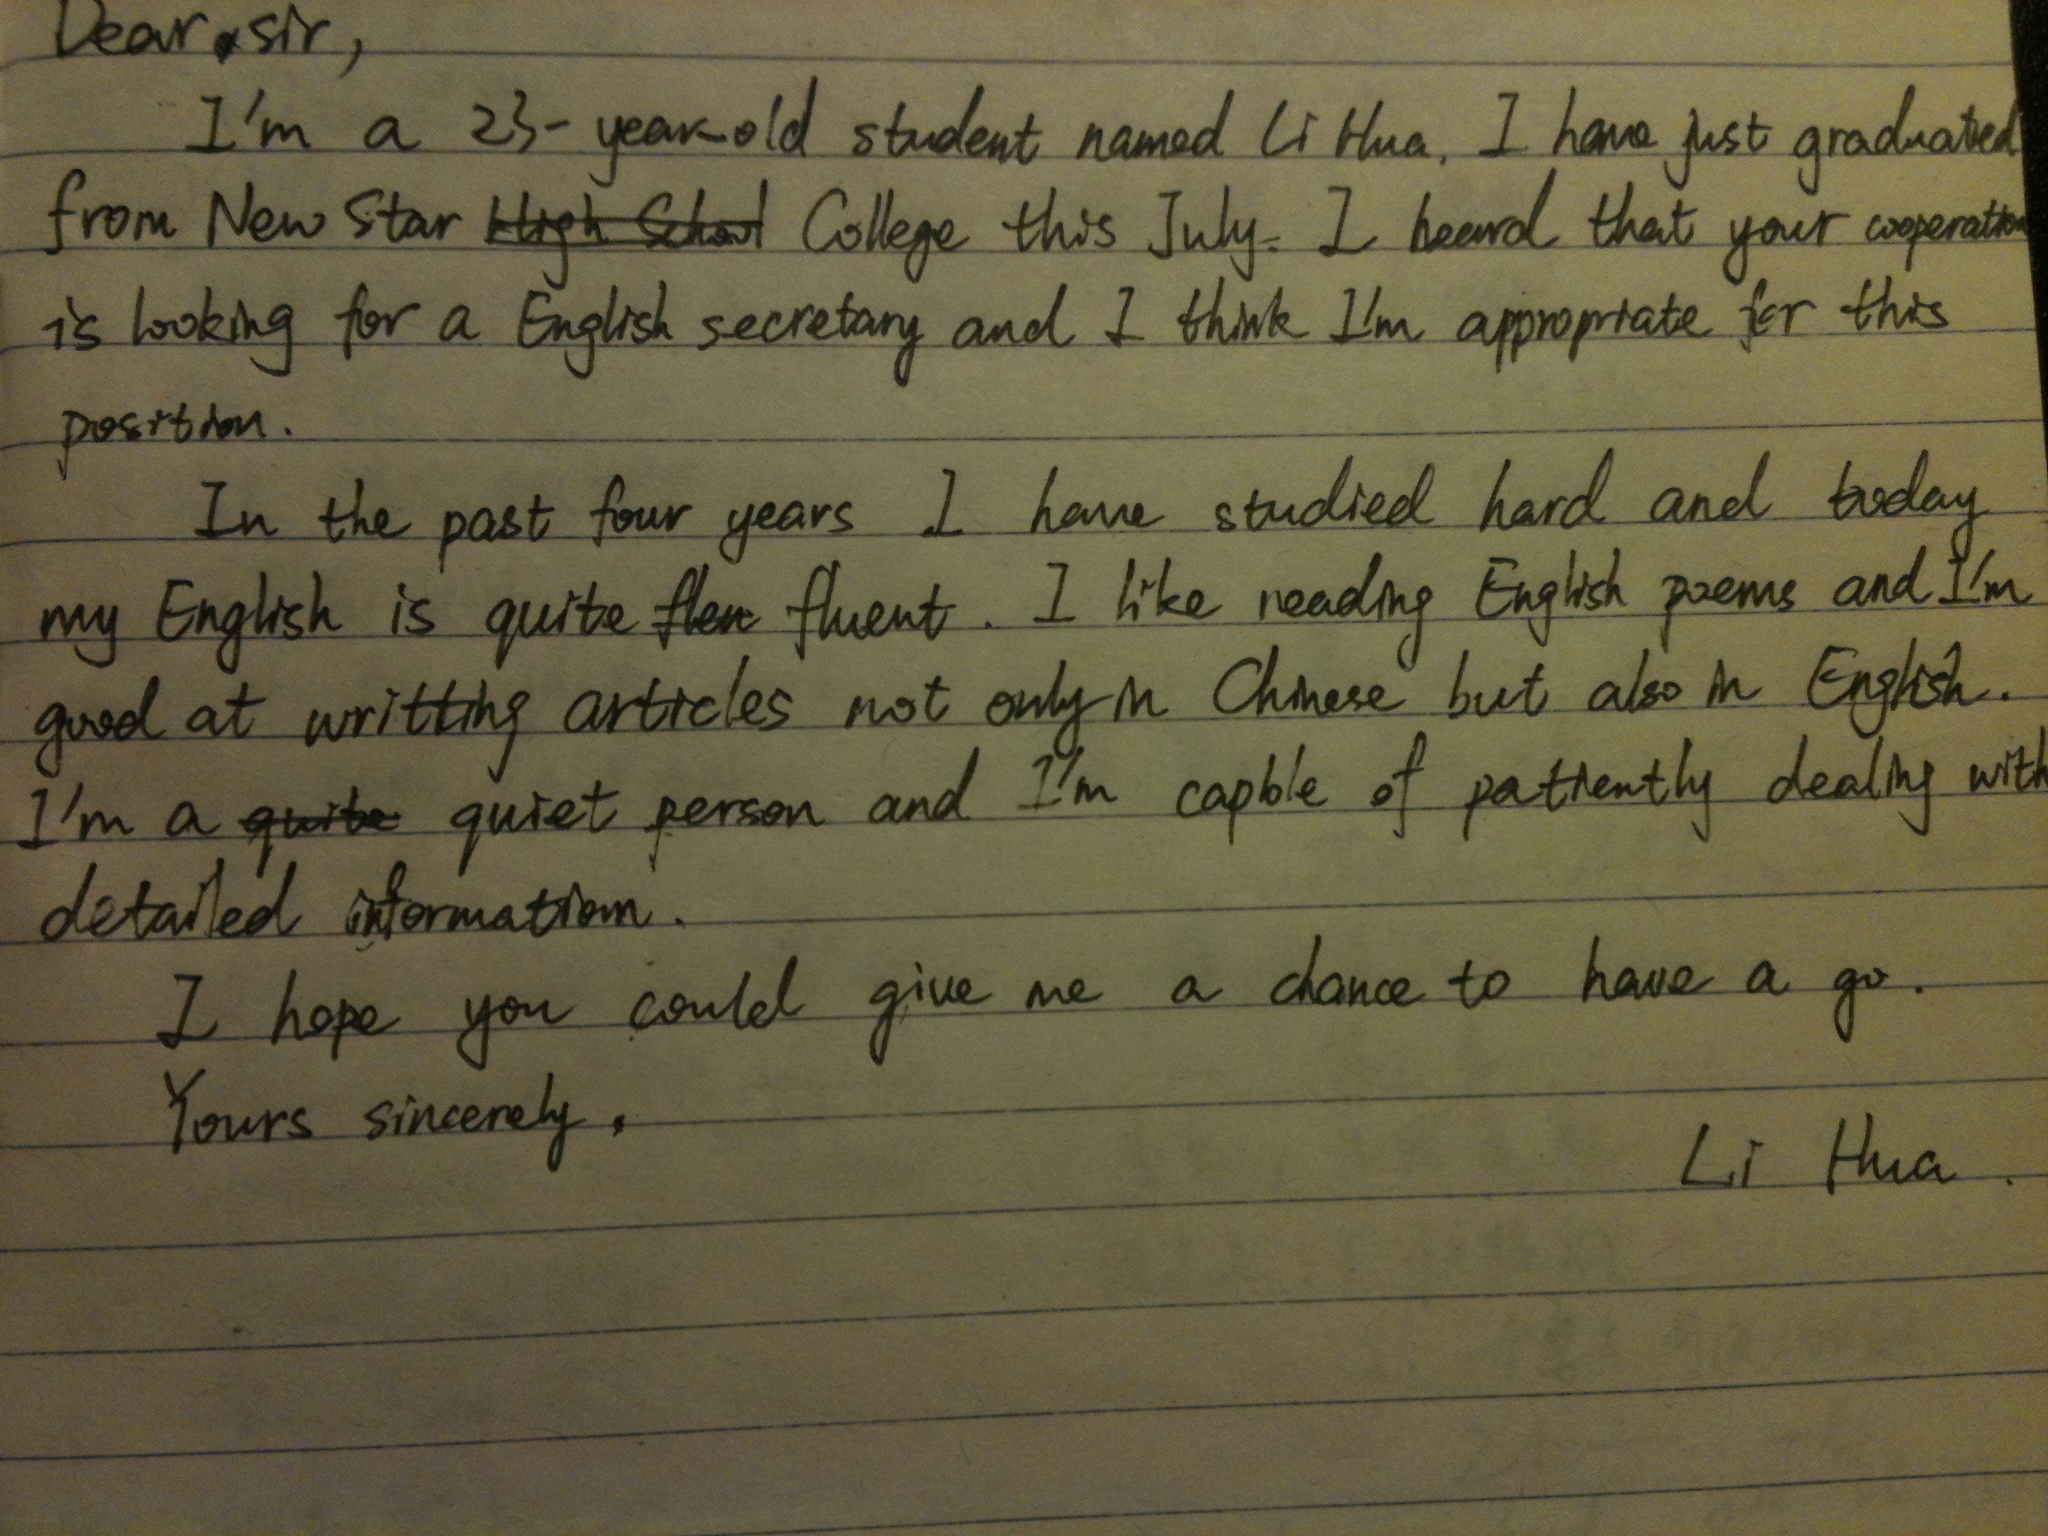 Dear sir,
I'm a 23-year-old student named Li Hua. I have just graduated
from New Star High School College this July. I heard that your cooperation
is looking for a English secretary and I think I'm appropriate for this
position.
In the past four years I have studied hard and today
my English is quite flen fluent. I like reading English poems and I'm
good at writting articles not only in Chinese but also in English.
I'm a quite quiet person and I'm capble of patiently dealing with
detailed information.
I hope you could give me a chance to have a go.
Yours sincerely,
Li Hua.